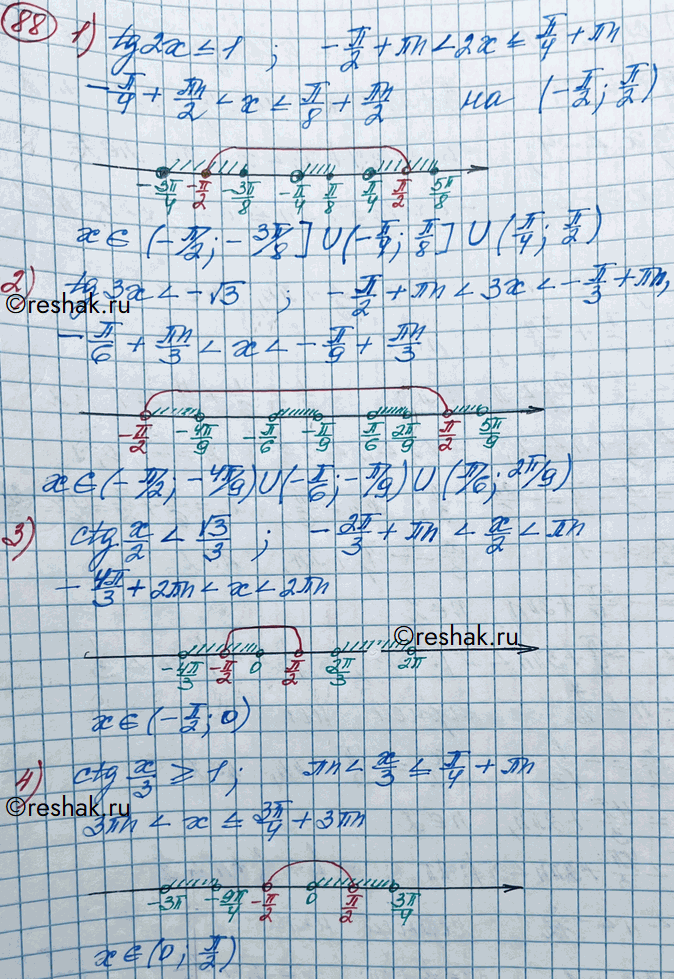 88
1) tg2x ≤ 1 ; -π/2 + πn < 2x ≤ π/4 + πn
-π/4 + πn/2 < x ≤ π/8 + πn/2 на (-π/2; π/2)
-3π/4 -π/2 -3π/8 -π/4 π/8 π/4 π/2 5π/8
x ∈ (-π/2; -3π/8] ∪ (-π/4; π/8] ∪ (π/4; π/2)
2) tg3x < -√3 ; -π/2 + πn < 3x < -π/3 + πn,
©reshak.ru
-π/6 + πn/3 < x < -π/9 + πn/3
-π/2 -4π/9 -π/6 -π/9 π/6 2π/9 π/2 5π/9
x ∈ (-π/2; -4π/9) ∪ (-π/6; -π/9) ∪ (π/6; 2π/9)
3) ctg x/2 < √3/3 ; -2π/3 + πn < x/2 < πn
-4π/3 + 2πn < x < 2πn
©reshak.ru
-4π/3 -π/2 0 π/2 2π/3 2π
x ∈ (-π/2; 0)
4) ctg x/3 ≥ 1; πn < x/3 ≤ π/4 + πn
©reshak.ru
3πn < x ≤ 3π/4 + 3πn
-3π -9π/4 -π/2 0 π/2 3π/4
x ∈ (0; π/2)